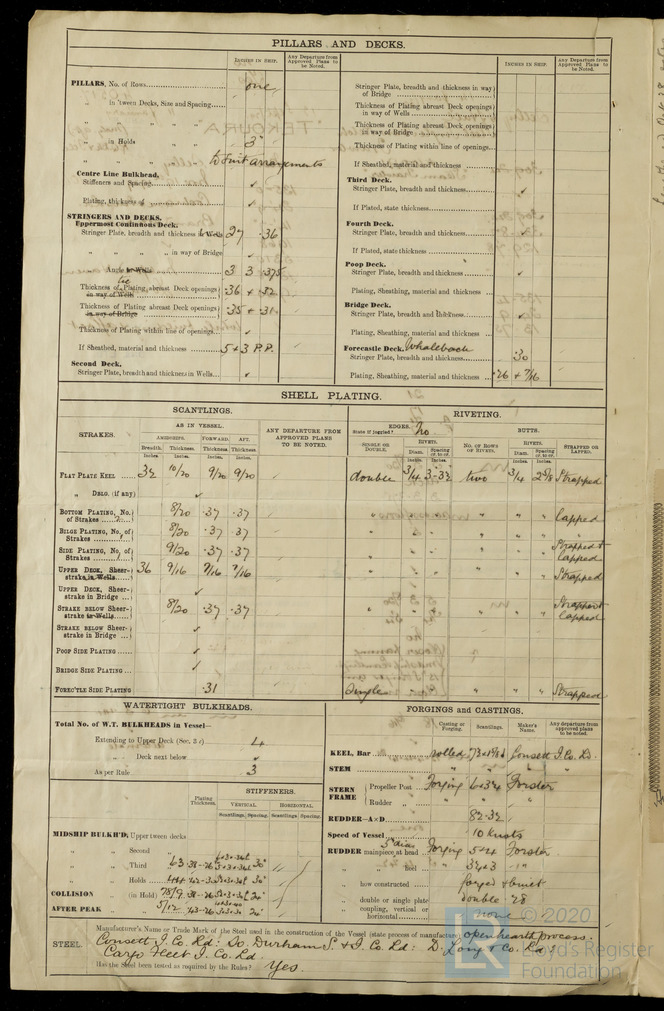 PILLARS AND DECKS.
INCHES IN SHIP.
Any Departure from Approved Plans to be Noted.
PILLARS, No. of Rows one
in 'tween Decks, Size and Spacing
" "
" in Holds " 3"
" " " to suit arrangements
Centre Line Bulkhead,
Stiffeners and Spacing ✓
Plating, thickness of ✓
STRINGERS AND DECKS.
Uppermost Continuous Deck.
Stringer Plate, breadth and thickness in Wells 27 .36
" " " in way of Bridge ✓
" Angle in Wells 3 3 .375
Thickness of Plating abreast Deck openings in way of Wells .36 + .32
Thickness of Plating abreast Deck openings in way of Bridge .35 + .31
Thickness of Plating within line of openings ✓
If Sheathed, material and thickness 5 + 3 P.P.
Second Deck.
Stringer Plate, breadth and thickness in Wells ✓
INCHES IN SHIP
Any Departure from Approved Plans to be Noted.
Stringer Plate, breadth and thickness in way of Bridge
Thickness of Plating abreast Deck openings in way of Wells
Thickness of Plating abreast Deck openings in way of Bridge
Thickness of Plating within line of openings
If Sheathed, material and thickness
Third Deck.
Stringer Plate, breadth and thickness ✓
If Plated, state thickness
Fourth Deck.
Stringer Plate, breadth and thickness ✓
If Plated, state thickness
Poop Deck.
Stringer Plate, breadth and thickness ✓
Plating, Sheathing, material and thickness
Bridge Deck.
Stringer Plate, breadth and thickness ✓
Plating, Sheathing, material and thickness
Forecastle Deck. Whaleback
Stringer Plate, breadth and thickness .30
Plating, Sheathing, material and thickness .26 + 7/16
SHELL PLATING.
SCANTLINGS.
RIVETING.
STRAKES.
AS IN VESSEL.
AMIDSHIPS. FORWARD. AFT.
Breadth. Thickness. Thickness. Thickness.
Inches. Inches. Inches. Inches.
ANY DEPARTURE FROM APPROVED PLANS TO BE NOTED.
EDGES. No
State if joggled?
BUTTS.
SINGLE OR DOUBLE.
RIVETS.
Diam. Spacing cr. to cr.
No. OF ROWS OF RIVETS.
RIVETS.
Diam. Spacing cr. to cr.
STRAPPED OR LAPPED.
FLAT PLATE KEEL 32 10/20 9/20 9/20 double 3/4 3-3½ two 3/4 2 5/8 Strapped
" DBLG. (if any) ✓
BOTTOM PLATING, No. of Strakes 8/20 .37 .37 " " " " " " Lapped
BILGE PLATING, No. of Strakes 8/20 .37 .37 " " " " " " "
SIDE PLATING, No. of Strakes 9/20 .37 .37 " " " " " " Strapped + Lapped
UPPER DECK, Sheerstrake in Wells 36 9/16 7/16 7/16 " " " " Strapped
UPPER DECK, Sheerstrake in Bridge ✓
STRAKE BELOW Sheerstrake in Wells 8/20 .37 .37 " " " " " " Strapped + Lapped
STRAKE BELOW Sheerstrake in Bridge ✓
POOP SIDE PLATING ✓
BRIDGE SIDE PLATING ✓
FOREC'TLE SIDE PLATING .31 Single " " " " " Strapped
WATERTIGHT BULKHEADS.
Total No. of W.T. BULKHEADS in Vessel—
Extending to Upper Deck (Sec. 3 c) 4
" Deck next below ✓
As per Rule 3
Plating Thickness.
STIFFENERS.
VERTICAL. HORIZONTAL.
Scantlings. Spacing. Scantlings. Spacing.
MIDSHIP BULK'D, Upper tween decks
" " Second "
" " Third " 30"
" " Holds 30"
COLLISION " (in Hold) 24"
AFTER PEAK " " 24"
FORGINGS and CASTINGS.
Casting or Forging. Scantlings. Maker's Name. Any departure from approved plans to be noted.
KEEL, Bar rolled Consett I. Co. Ld.
STEM " " "
STERN FRAME
Propeller Post Forging 6 x 3¼ Forster
Rudder " " " "
RUDDER—A×D 82.32
Speed of Vessel 10 knots
RUDDER mainpiece at head 5" dia. Forging 5 × 4 Forster
" " heel 3½ × 3 "
" how constructed forged & built
" double or single plate double .28
" coupling, vertical or horizontal none
STEEL.
Manufacturer's Name or Trade Mark of the Steel used in the construction of the Vessel (state process of manufacture) open hearth process.
Consett I. Co. Ld: So. Durham S. & I. Co. Ld: D. Long & Co. Ld:
Cargo Fleet I. Co. Ld.
Has the Steel been tested as required by the Rules? Yes.
© 2020
Lloyd's Register
Foundation